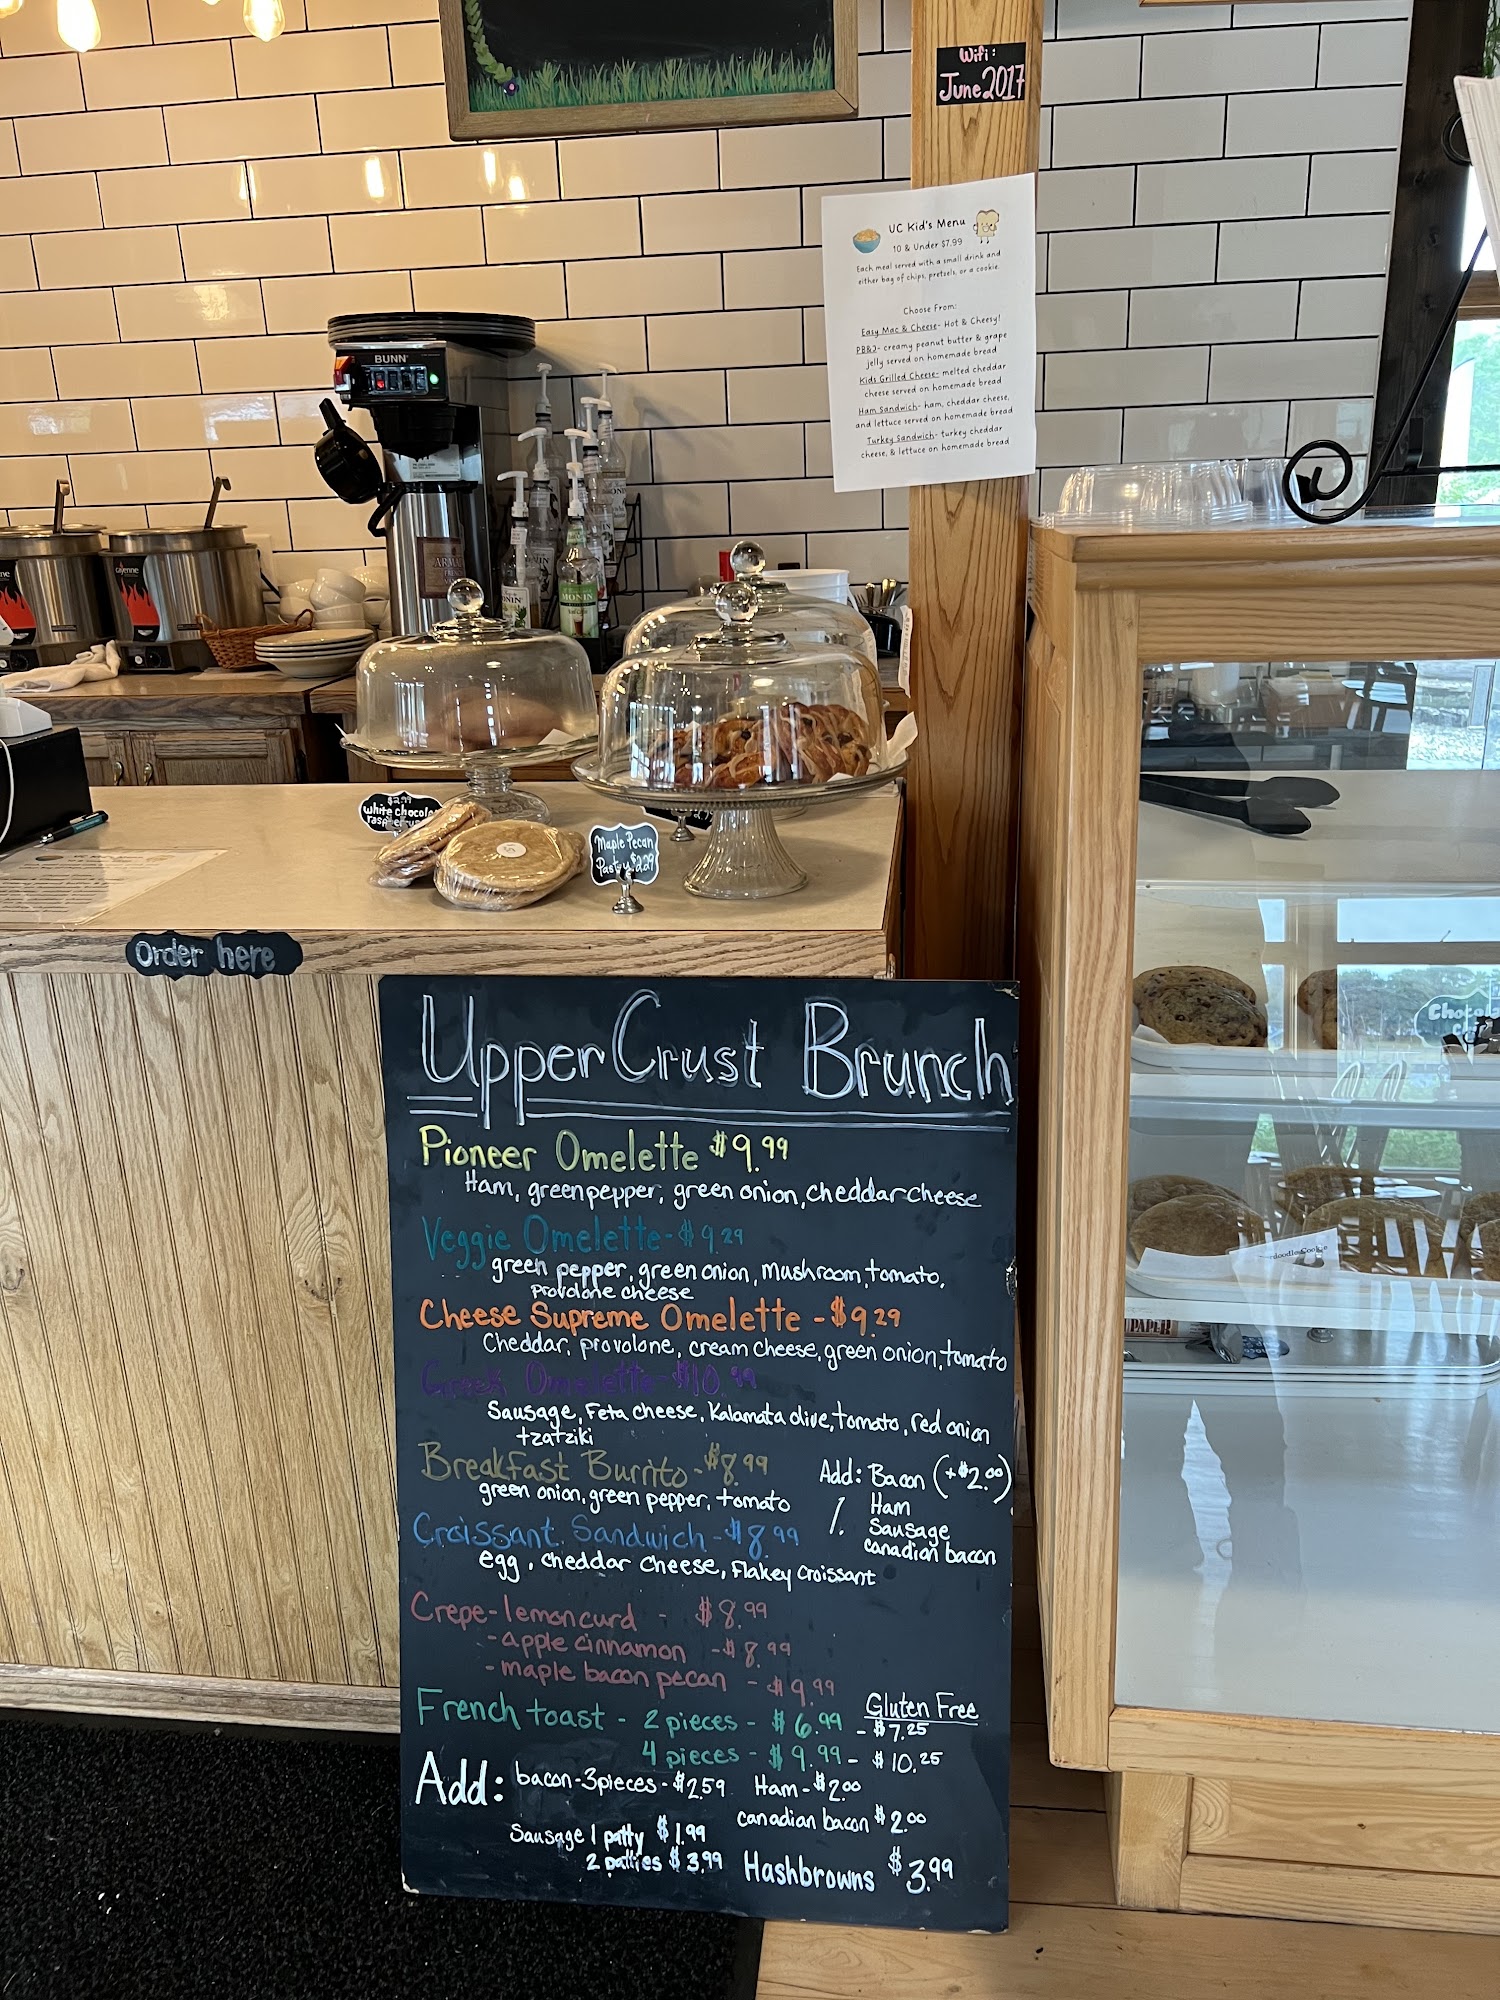 Wifi:
June 2017
UC Kid's Menu
10 & Under $7.99
Each meal served with a small drink and
either bag of chips, pretzels, or a cookie.
Choose From:
Easy Mac & Cheese- Hot & Cheesy!
PB&J- creamy peanut butter & grape
jelly served on homemade bread
Kids Grilled Cheese- melted cheddar
cheese served on homemade bread
Ham Sandwich- ham, cheddar cheese,
and lettuce served on homemade bread
Turkey Sandwich- turkey cheddar
cheese, & lettuce on homemade bread
BUNN
cayenne
MONIN
MONIN
$2.99
White chocola
Maple Pecan
Pastry $2.29
Order here
UpperCrust Brunch
Pioneer Omelette $9.99
Ham, green pepper, green onion, cheddar cheese
Veggie Omelette - $9.29
green pepper, green onion, mushroom, tomato,
provolone cheese
Cheese Supreme Omelette - $9.29
Cheddar, provolone, cream cheese, green onion, tomato
Greek Omelette - $10.99
Sausage, Feta cheese, Kalamata olive, tomato, red onion
tzatziki
Breakfast Burrito - $8.99
green onion, green pepper, tomato
Add: Bacon (+$2.00)
Ham
Sausage
canadian bacon
Croissant Sandwich - $8.99
egg, cheddar cheese, Flakey croissant
Crepe - lemon curd - $8.99
- apple cinnamon - $8.99
- maple bacon pecan - $9.99
Gluten Free
French toast - 2 pieces - $6.99 - $7.25
4 pieces - $9.99 - $10.25
Add: bacon - 3 pieces - $2.59 Ham - $2.00
canadian bacon $2.00
Sausage 1 patty $1.99
2 patties $3.99
Hashbrowns $3.99
PAPER